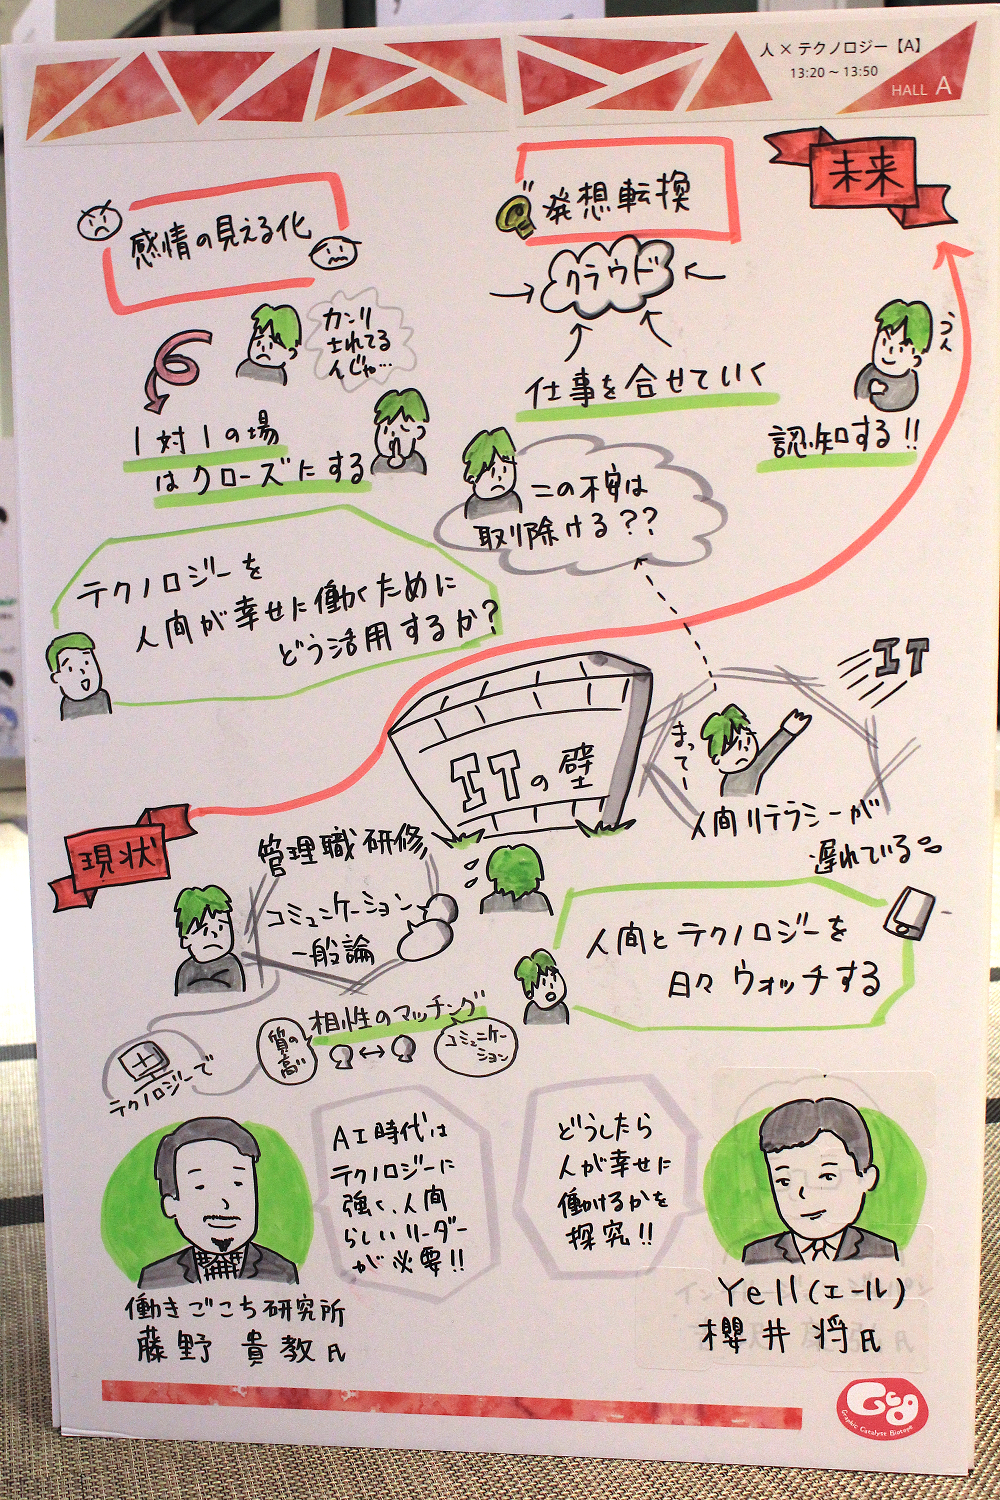 人×テクノロジー【A】
13:20～13:50
HALL A
未来
発想転換
感情の見える化
クラウド
カンリ
されてる
んじゃ…
うん
仕事を合せていく
1対1の場
はクローズにする
認知する!!
この不安は
取り除ける??
テクノロジーを
人間が幸せに働くために
どう活用するか?
IT
ITの壁
まってー
人間リテラシーが
遅れている
現状
管理職研修
コミュニケーション
一般論
人間とテクノロジーを
日々ウォッチする
相性のマッチング
質の
高い
コミュニケー
ション
テクノロジーで
AI時代は
テクノロジーに
強く、人間
らしいリーダー
が必要!!
どうしたら
人が幸せに
働けるかを
探究!!
働きごこち研究所
藤野 貴教氏
Yell(エール)
櫻井 将氏
Gcb
Graphic Catalyst Biotope